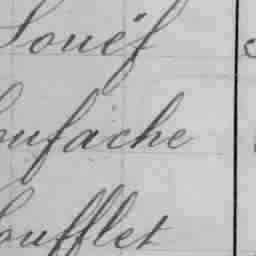 Souëf
oufache
oufflet